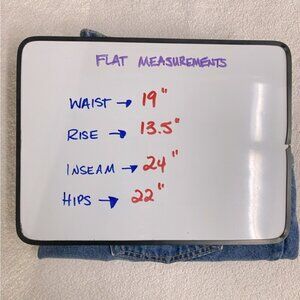 FLAT MEASUREMENTS
WAIST → 19"
RISE → 13.5"
INSEAM → 24"
HIPS → 22"